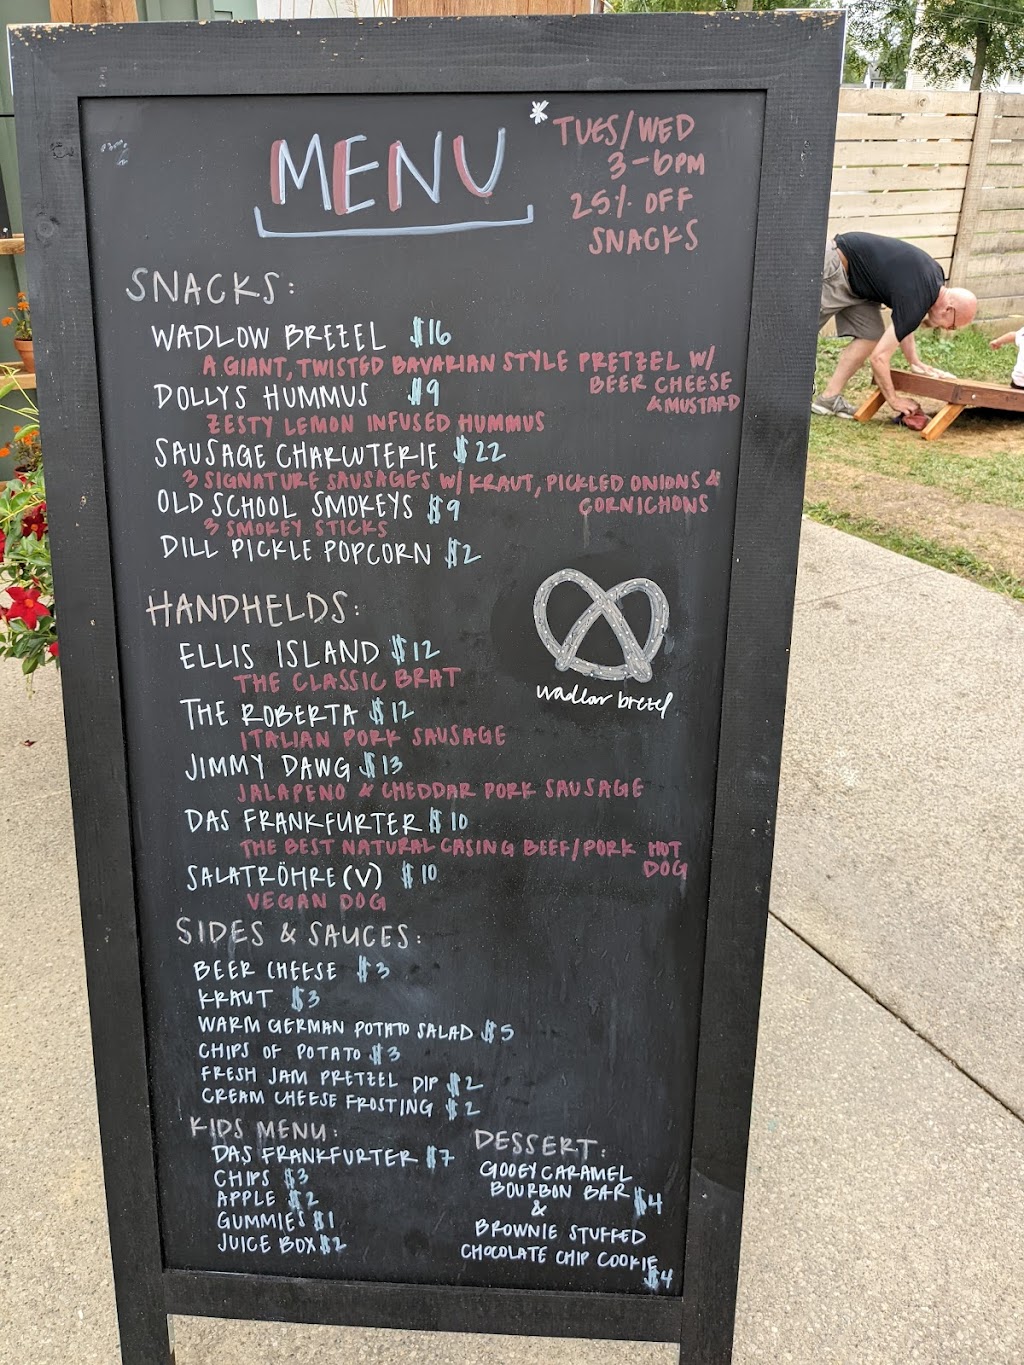 MENU
*TUES/WED
3-6PM
25% OFF
SNACKS
SNACKS:
WADLOW BREZEL $16
A GIANT, TWISTED BAVARIAN STYLE PRETZEL W/
BEER CHEESE
& MUSTARD
DOLLYS HUMMUS $9
ZESTY LEMON INFUSED HUMMUS
SAUSAGE CHARCUTERIE $22
3 SIGNATURE SAUSAGES W/ KRAUT, PICKLED ONIONS &
CORNICHONS
OLD SCHOOL SMOKEYS $9
3 SMOKEY STICKS
DILL PICKLE POPCORN $2
wadlow brezel
HANDHELDS:
ELLIS ISLAND $12
THE CLASSIC BRAT
THE ROBERTA $12
ITALIAN PORK SAUSAGE
JIMMY DAWG $13
JALAPENO & CHEDDAR PORK SAUSAGE
DAS FRANKFURTER $10
THE BEST NATURAL CASING BEEF/PORK HOT
DOG
SALATRÖHRE (V) $10
VEGAN DOG
SIDES & SAUCES:
BEER CHEESE $3
KRAUT $3
WARM GERMAN POTATO SALAD $5
CHIPS OF POTATO $3
FRESH JAM PRETZEL DIP $2
CREAM CHEESE FROSTING $2
KIDS MENU:
DAS FRANKFURTER $7
CHIPS $3
APPLE $2
GUMMIES $1
JUICE BOX $2
DESSERT:
GOOEY CARAMEL
BOURBON BAR $4
&
BROWNIE STUFFED
CHOCOLATE CHIP COOKIE
$4